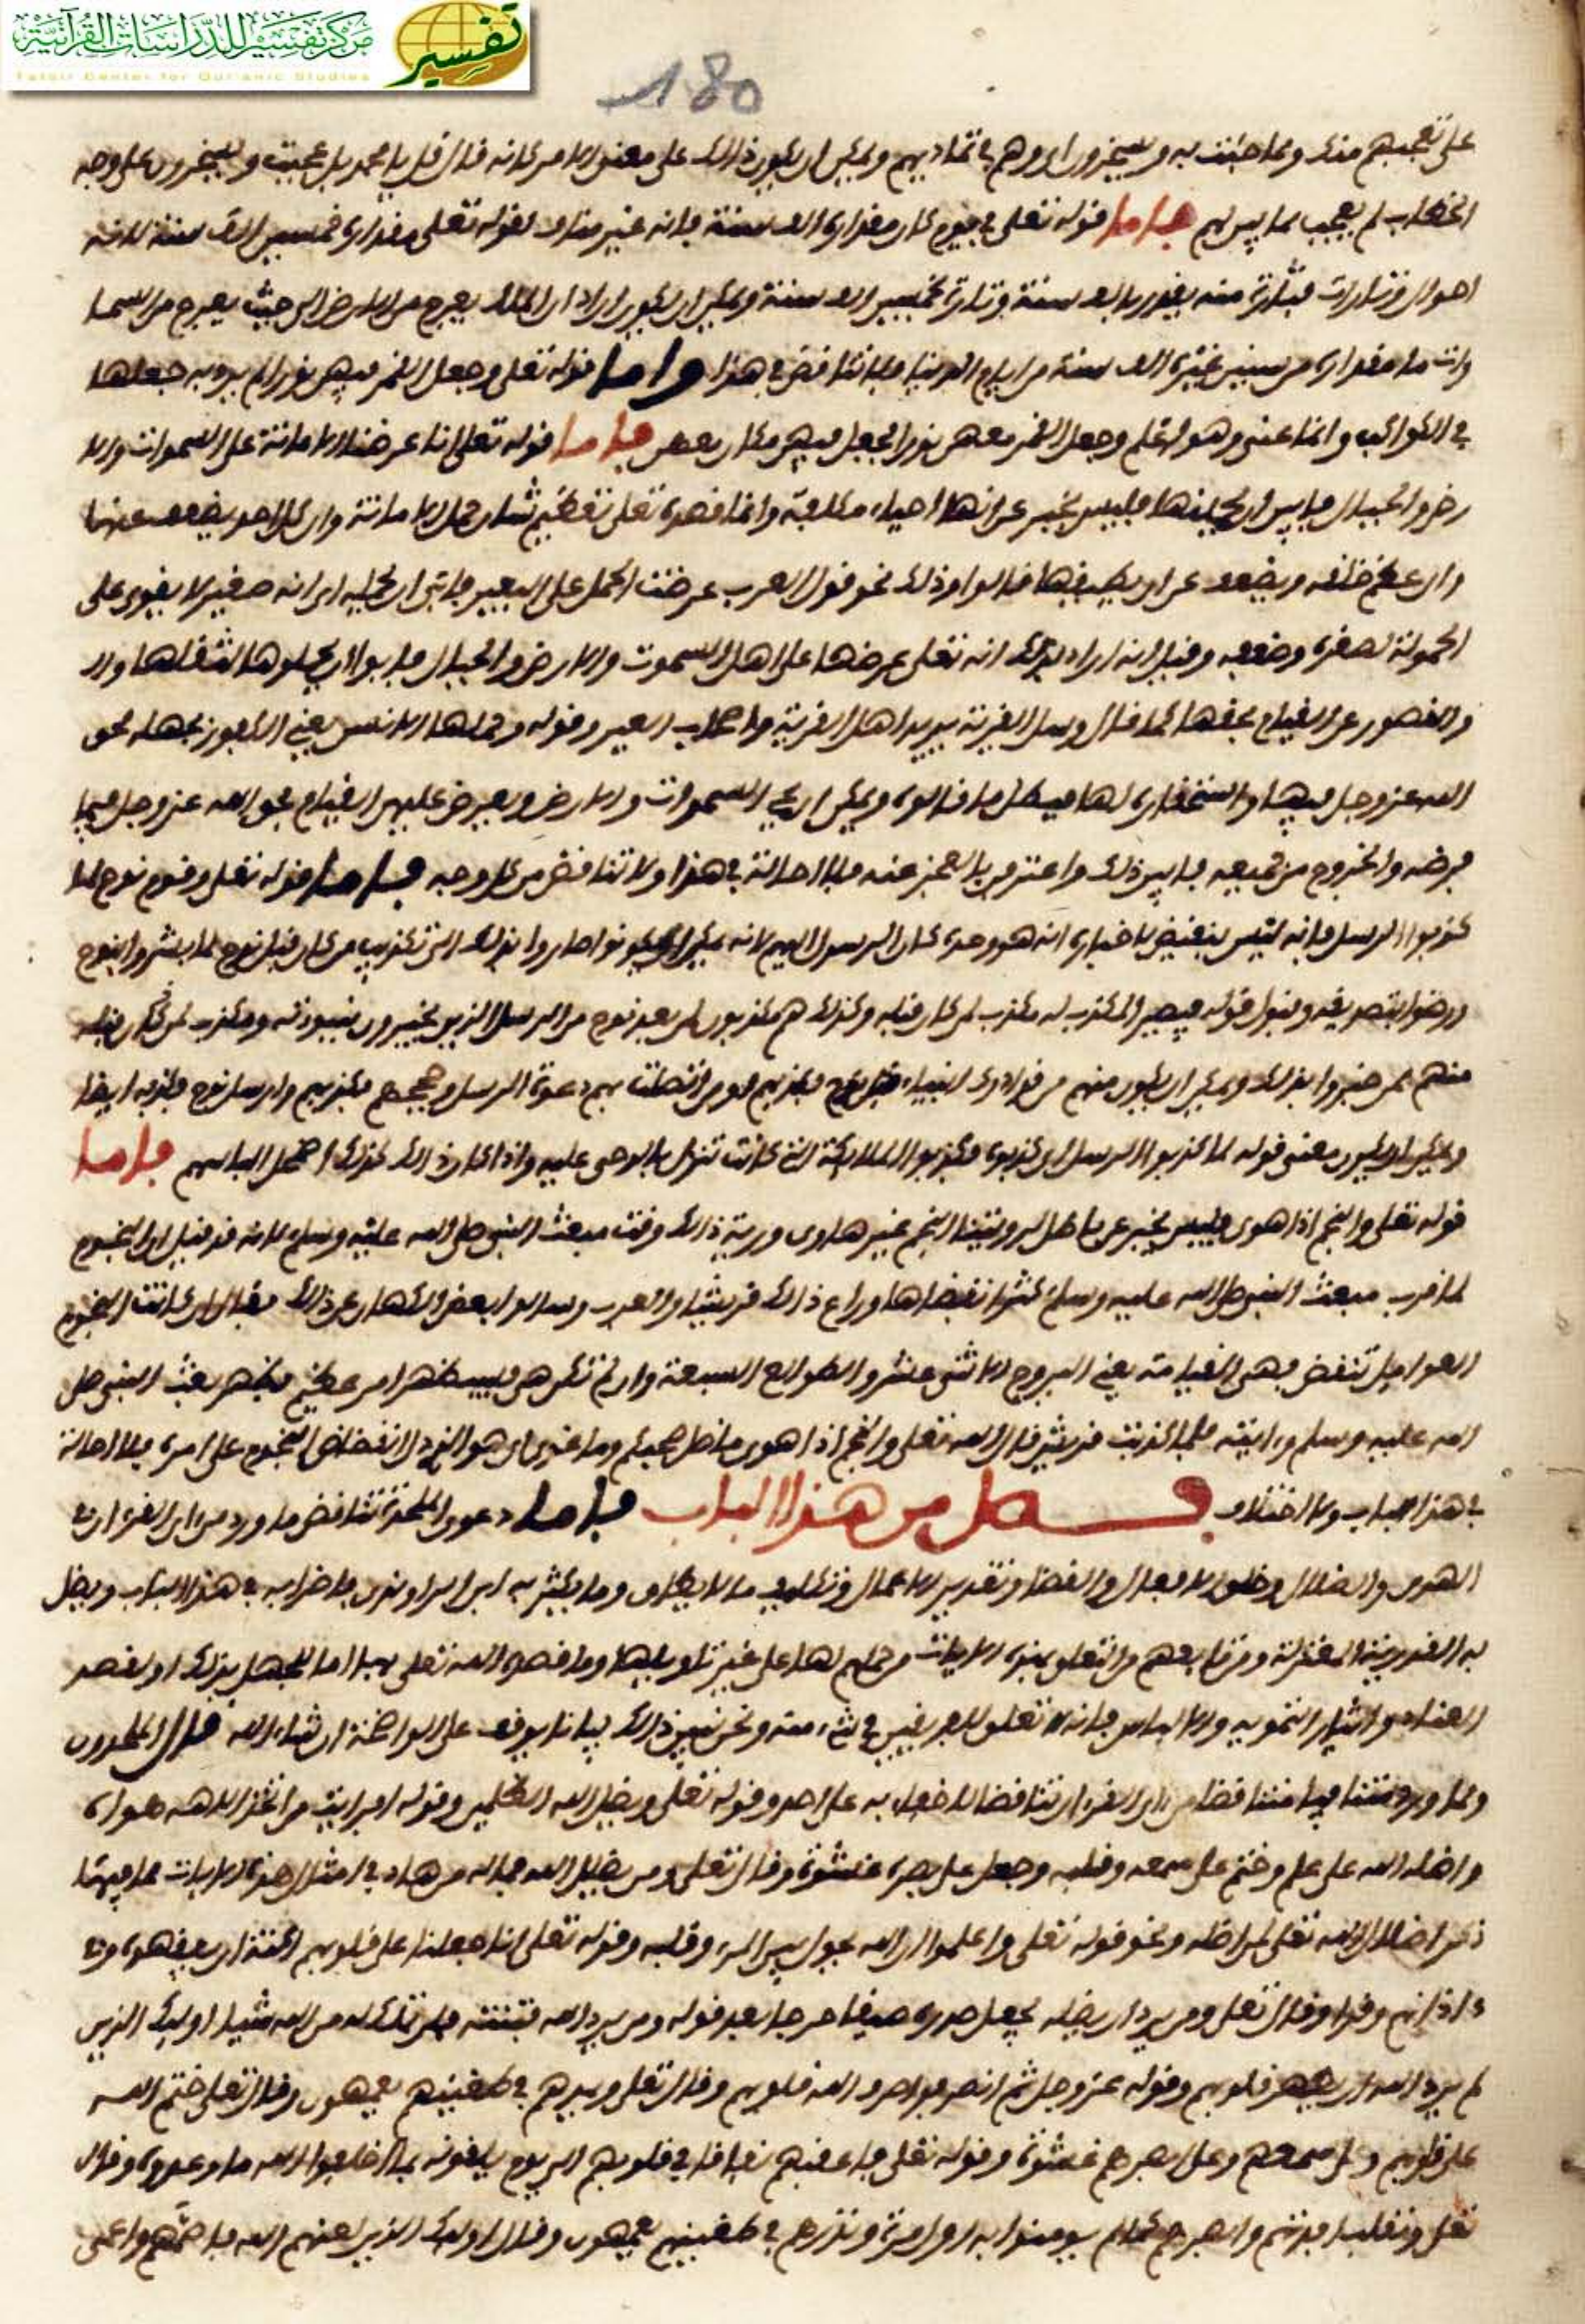 مركز تفسير للدراسات القرآنية
Tafsir Center for Qur'anic Studies
تفسير
180
على تعجبهم منك ومما جئت به ويسخرون اي وهم في تماديهم ويمكن ان يكون ذلك على معنى الامر كانه قال قل يا محمد بل عجبت ويسخرون على وجه
الخطاب لم يعجب مما فاما قوله تعلى في يوم كان مقداره الف سنة فانه غير مناف لقوله تعلى مقداره خمسين الف سنة لانه
اهوال وتارات فتارة منه يقدر بالف سنة وتارة بخمسين الف سنة ويمكن ان يكون اراد ان الملك يعرج من الارض الى حيث يعرج من السما
مقداره من سنين غيره الف سنة من ايام الدنيا فلا تناقض في هذا واما قوله تعلى وجعل القمر فيهن نورا لم يرد به جعلها
في الكواكب وانما عنى وهو اعلم وجعل القمر معهن نورا فجعل فيهن مكان بعض فاما قوله تعلى انا عرضنا الامانة على السموات والا
رض والجبال فابين ان يحملنها فليس بخبر عن انها احياء مكلفة وانما قصده تعلى تعظيم شان حمل الامانة وان كل احد يضعف عنها
وان عظم خلقه ويضعف عن ان يطيقها قالوا وذلك نحو قول العرب عرضت الحمل على البعير فابى ان يحمله اي انه صغير لا يقوى على
الحمولة لصغره وضعفه وقيل انه اراد بذلك انه تعلى عرضها على اهل السموت والارض والجبال فابوا ان يحملوها لثقلها
والقصور عن القيام بحقها كما قال وسل القرية يريد اهل القرية واصحاب العير وقوله وحملها الانسن يعني الكافر بجهله بحق
الله عز وجل فيها واستحقاره لها فبطل ما قالوه ويمكن ان يحيي السموات والارض ويعرض عليهن القيام بحق الله عز وجل فيما
فرضه والخروج من جميعه فابين ذلك واعترفن بالعجز عنه فلا احالة في هذا ولا تناقض من كل وجه فاما قوله تعلى وقوم نوح لما
كذبوا الرسل فانه ليس بنقيض لاخباره انه هو وحده كان الرسول اليهم لانه يمكن ان يكونوا صاروا بذلك الى تكذيب من كان قبل نوح لما بشروا بنوح
ورضوا بتصديقه وقبول قوله فيصير المكذب له مكذب لمن كان قبله وكذلك هم مكذبون لمن بعد نوح من الرسل الذين يخبرون بنبوته ومكذب لمن كان قبله
منهم ممن خبروا بذلك ويمكن ان يكون منهم من قد ادرك انبياء قبل نوح فكذبهم اومن اتصلت بهم دعوة الرسل وحججهم فكذبهم وارسل نوح فكذبه ايضا
ويمكن ان يكون معنى قوله لما كذبوا الرسل اي كذبوه فكذبوا الملائكة التي كانت تنزل بالوحي عليه واذا كان ذلك كذلك اضمحل الباسهم فاما
قوله تعلى والنجم اذا هوى فليس بخبر عن باطل لرويتنا النجم غير هاوى ورية ذلك وقت مبعث النبي صلى الله عليه وسلم لانه قد قيل ان النجوم
لما قرب مبعث النبي صلى الله عليه وسلم كثر انقضاضها وراع ذلك قريشا والعرب وسالوا بعض الكهان عن ذلك فقال ان كانت النجوم
العوامل تنقض فهي القيامة يعني البروج الاثنى عشر والطوالع السبعة وان لم تكن هي فسيظهر امر عظيم فظهر بعث النبي صلى
الله عليه وسلم وايته فلما كذبت قريش قال الله تعلى والنجم اذا هوى ما ضل صحبكم وما غوى اي هو الذي دل انقضاض النجوم على امره فلا احالة
في هذا الباب ولا اختلاف فصل من هذا الباب فاما دعوى الملحدة تناقض ما ورد من اي القرءان في
الهدى والضلال وخلق الافعال والقضا وتقدير الاعمال وتكليف ما لا يطاق وما يكثر به ابن الراوندي واضرابه في هذا الباب ويصل
به القدرية المعتزلة ومن تابعهم من التعلق بهذه الايات وحملهم لها على غير تاويلها وما قصده الله تعلى بها اما للجهل بذلك او لقصد
العناد وايثار التمويه والالباس فانه لا تعلق للفريقين في شيء منه ونحن نبين ذلك بيانا يوقف على الواضحة ان شاء الله قال الملحدون
ومما ورد متنافيا متناقضا من اي القرءان تناقضا لا خفاء به على احد قوله تعلى ويضل الله الظلمين وقوله افرايت من اتخذ الاهه هواه
واضله الله على علم وختم على سمعه وقلبه وجعل على بصره غشوة وقال تعلى ومن يضلل الله فما له من هاد في امثال هذه الايات مما فيها
ذكر اضلال الله تعلى لمن اضله ونحو قوله تعلى واعلموا ان الله يحول بين المرء وقلبه وقوله تعلى انا جعلنا على قلوبهم اكنة ان يفقهوه وفي
ءاذانهم وقرا وقال تعلى ومن يرد ان يضله يجعل صدره ضيقا حرجا بعد قوله ومن يرد الله فتنته فلن تملك له من الله شيا اولئك الذين
لم يرد الله ان يطهر قلوبهم وقوله عز وجل ثم انصرفوا صرف الله قلوبهم وقال تعلى ويمدهم في طغينهم يعمهون وقال تعلى ختم الله
على قلوبهم وعلى سمعهم وعلى ابصرهم غشوة وقوله تعلى فاعقبهم نفاقا في قلوبهم الى يوم يلقونه بما اخلفوا الله ما وعدوه وقال
تعلى ونقلب افدتهم وابصرهم كما لم يومنوا به اول مرة ونذرهم في طغينهم يعمهون وقال اولئك الذين لعنهم الله فاصمهم واعمى